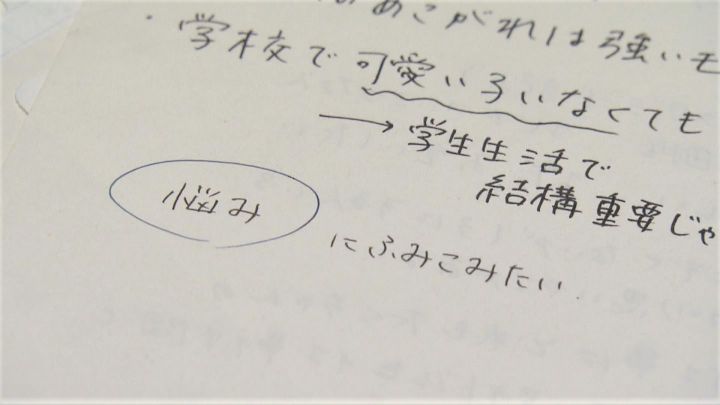 あこがれは強いモ
・学校で可愛い子いなくても
→学生生活で
結構重要じゃ
悩み
にふみこみたい